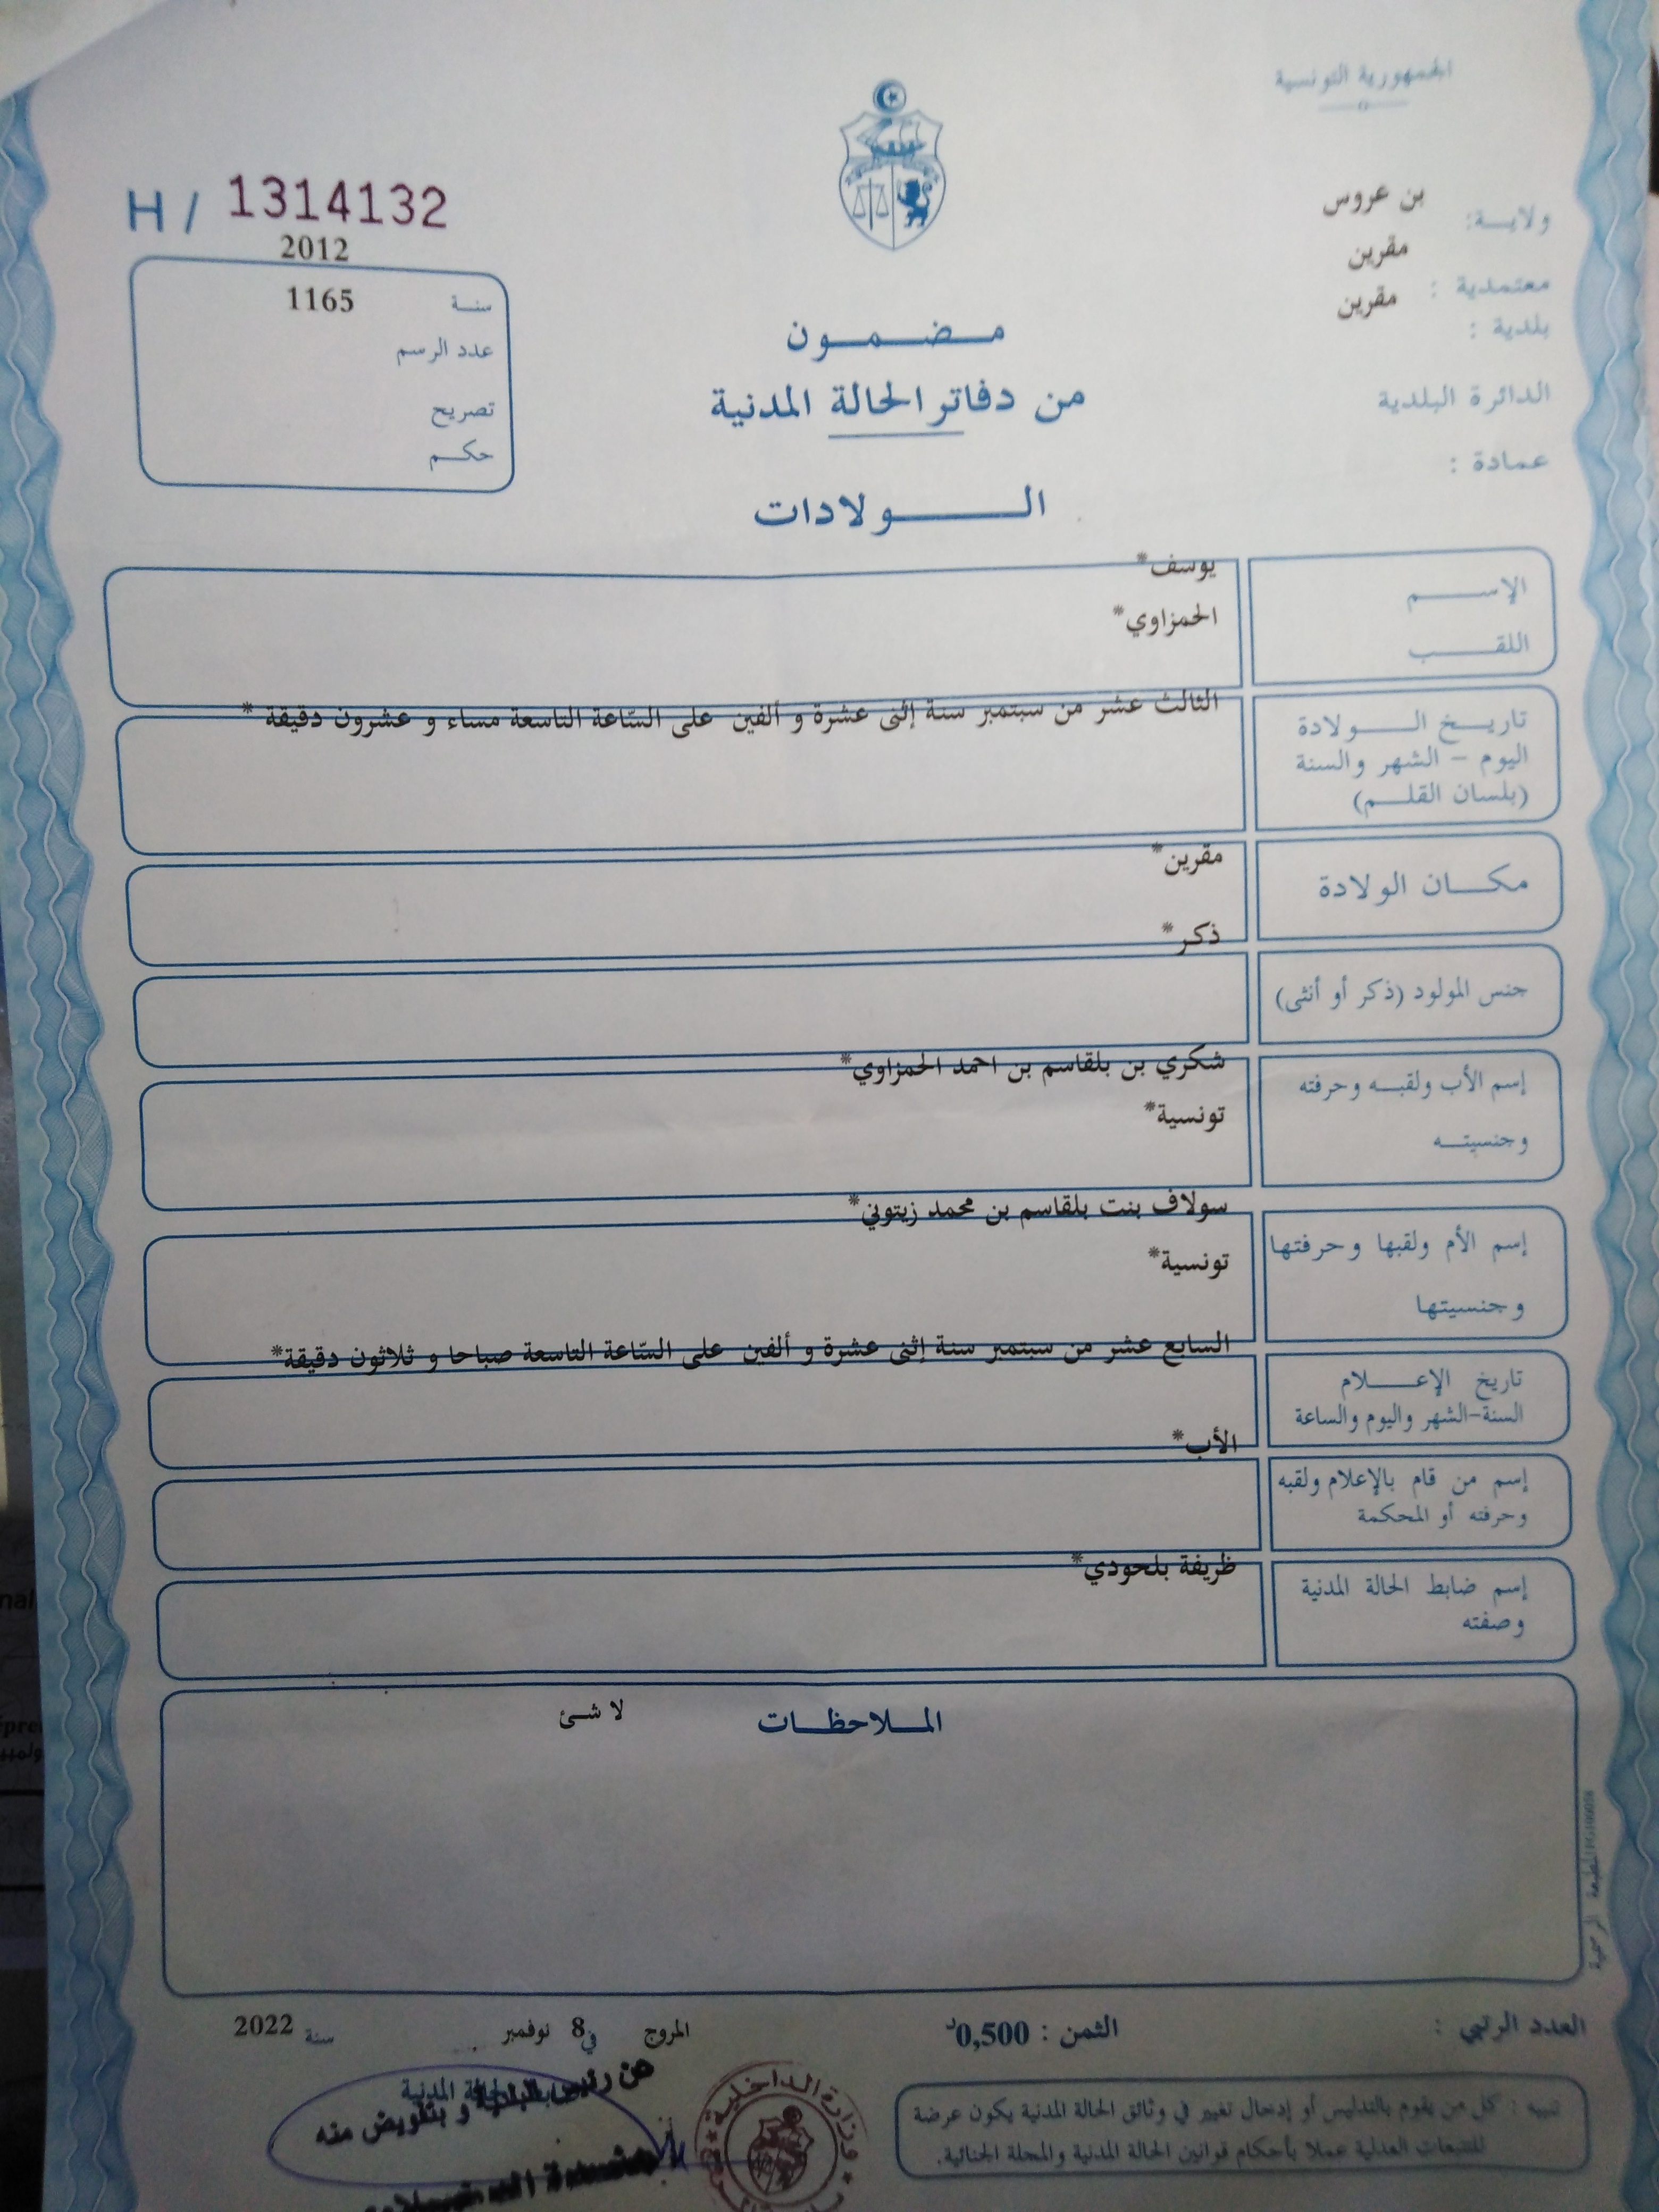 الجمهورية التونسية
ولاية: بن عروس
معتمدية : مقرين
بلدية : مقرين
الدائرة البلدية
عمادة :
H / 1314132
2012
سنة 1165
عدد الرسم
تصريح
حكم
مضمون
من دفاتر الحالة المدنية
الولادات
يوسف*
الإسم
الحمزاوي*
اللقب
الثالث عشر من سبتمبر سنة إثنى عشرة و ألفين على السّاعة التاسعة مساء و عشرون دقيقة *
تاريخ الولادة
اليوم - الشهر والسنة
(بلسان القلم)
مقرين*
مكان الولادة
ذكر*
جنس المولود (ذكر أو أنثى)
شكري بن بلقاسم بن احمد الحمزاوي*
إسم الأب ولقبه وحرفته
تونسية*
وجنسيته
سولاف بنت بلقاسم بن محمد زيتوني*
إسم الأم ولقبها وحرفتها
تونسية*
وجنسيتها
السابع عشر من سبتمبر سنة إثنى عشرة و ألفين على السّاعة التاسعة صباحا و ثلاثون دقيقة*
تاريخ الإعلام
السنة-الشهر واليوم والساعة
الأب*
إسم من قام بالإعلام ولقبه
وحرفته أو المحكمة
ظريفة بلحودي*
إسم ضابط الحالة المدنية
وصفته
الملاحظات لا شئ
العدد الرتبي :
الثمن : 0,500د
المروج في 8 نوفمبر سنة 2022
تنبيه : كل من يقوم بالتدليس أو إدخال تغيير في وثائق الحالة المدنية يكون عرضة
للتتبعات العدلية عملا بأحكام قوانين الحالة المدنية والمجلة الجنائية.
عن رئيس البلدية و بتفويض منه
وزارة الداخلية